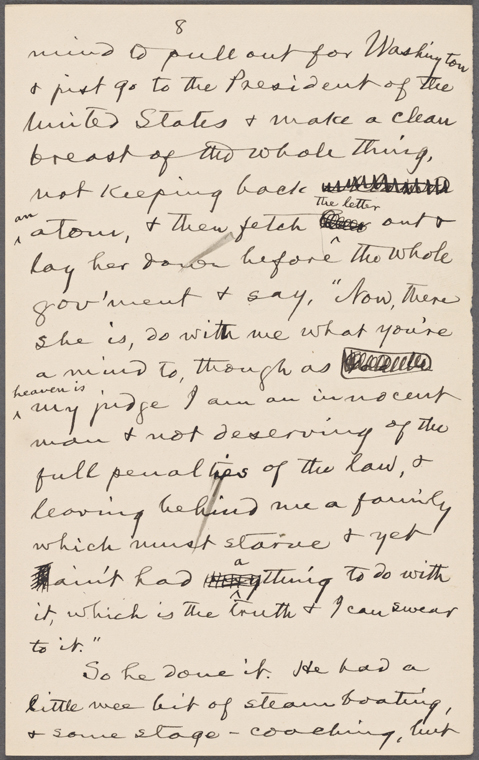 8
mind to pull out for Washington
& just go to the President of the
United States & make a clean
breast of the whole thing,
not keeping back
an atom, & then fetch the letter out &
lay her down before the whole
gov'ment & say, "Now, there
she is, do with me what you're
a mind to, though as
heaven is my judge I am an innocent
man & not deserving of the
full penalties of the law, &
leaving behind me a family
which must starve & yet
ain't had a thing to do with
it, which is the truth & I can swear
to it."
So he done it. He had a
little wee bit of steamboating,
& some stage-coaching, but